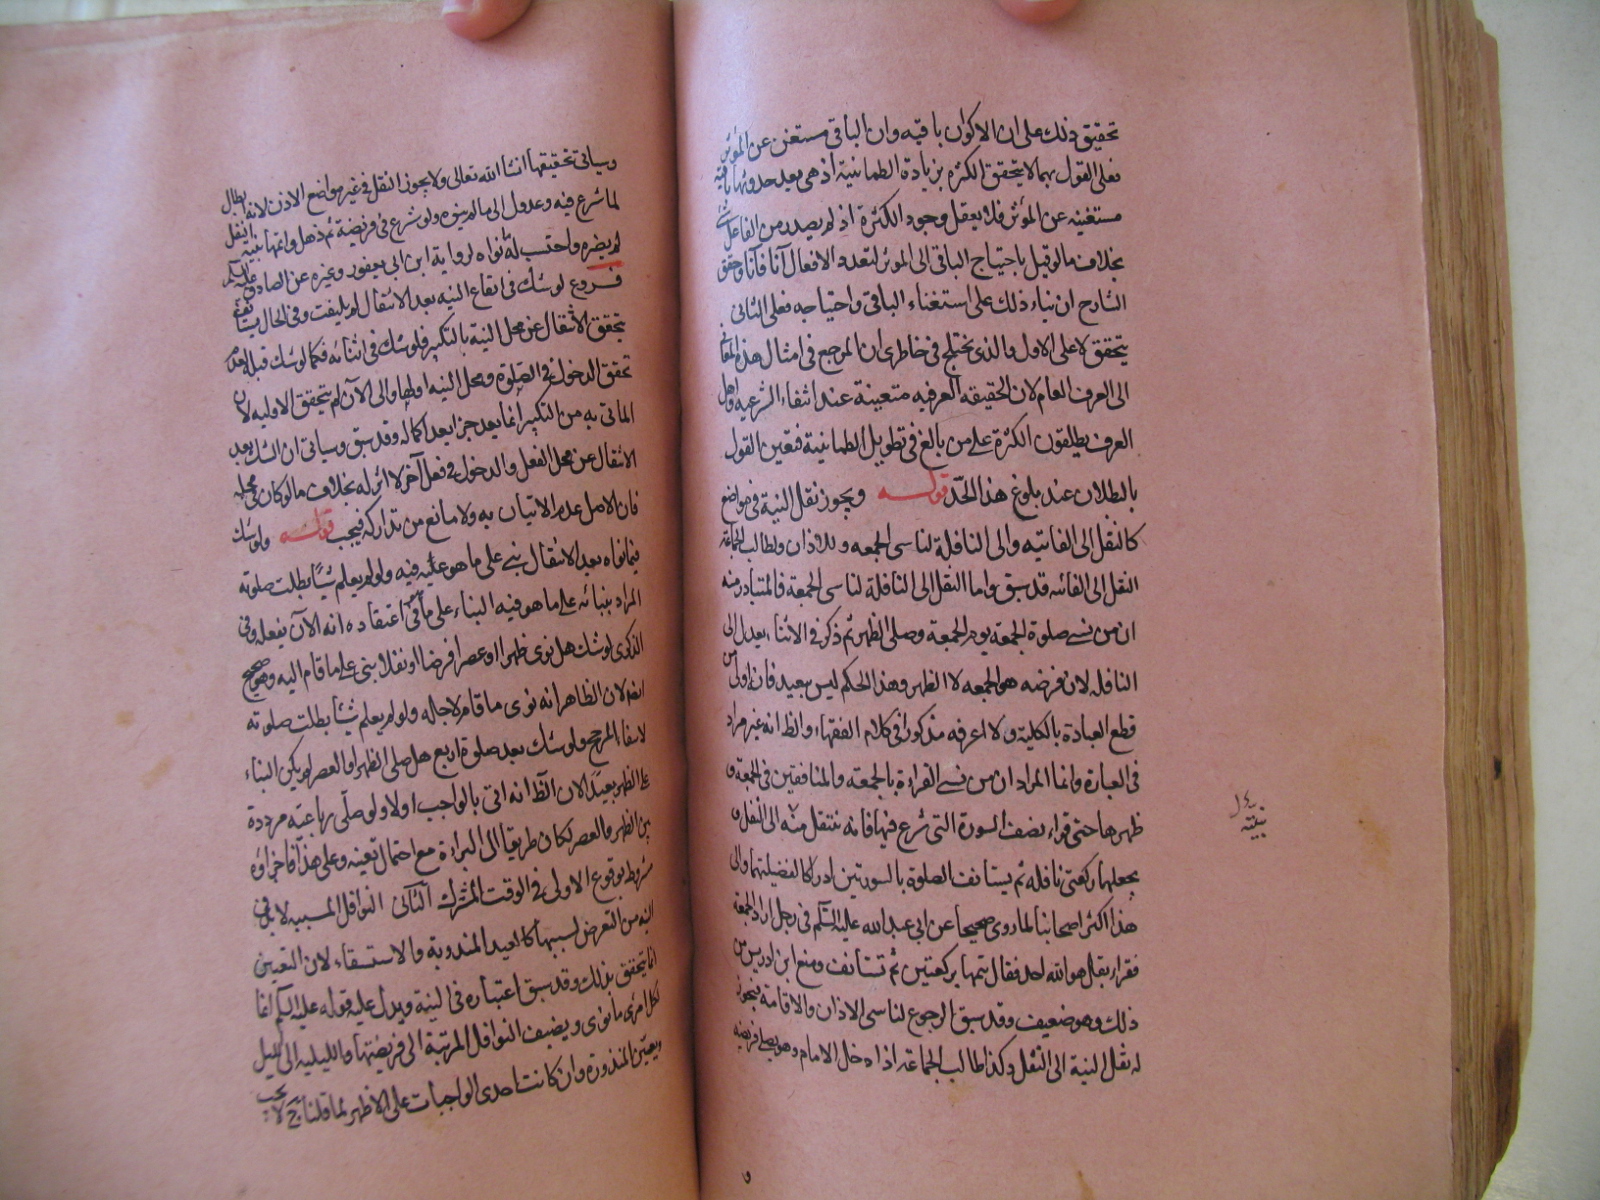 تحقيق ذلك على ان الاكوان باقيه وان الباقى مستغن عن المؤثر
فعلى القول بهما لا يتحقق الكثرة بزيادة الطمانينة اذ هى بعد حدوثها باقية
مستغنيه عن المؤثر فلا يعقل وجود الكثرة اذ لم يصدر من الفاعل شئ
بخلاف ما لو قيل باحتياج الباقى الى المؤثر لتعدد الافعال آنا فآنا وحقق
الشارح ان بناء ذلك على استغناء الباقى واحتياجه فعلى الثانى
يتحقق لا على الاول والذى يختلج فى خاطرى ان المرجع فى امثال هذه المعانى
الى العرف العام لان الحقيقه العرفيه متعينة عند انتفاء الشرعيه واهل
العرف يطلقون الكثرة على من بالغ فى تطويل الطمانينة فتعين القول
بالبطلان عند بلوغ هذا الحد قوله ويجوز نقل النية فى مواضع
كالنقل الى الفائتيه والى النافلة لناسى الجمعه وللاذان ولطالب الجماعة
النقل الى الفائته قد سبق واما النقل الى النافلة لناسى الجمعة فالمتبادر منه
ان من نسى صلوة الجمعة يوم الجمعة وصلى الظهر ثم ذكر فى الاثناء يعدل الى
النافله لان فرضه هو الجمعه لا الظهر وهذا الحكم ليس ببعيد فان اولى من
قطع العبادة بالكلية ولا اعرفه مذكورا فى كلام الفقهاء والظ انه غير مراد
فى العبارة وانما المراد ان من نسى القراءة بالجمعة والمنافقين فى الجمعة و
ظهرها حتى قراء نصف السورة التى شرع فيها فانه ينتقل منه الى النفل و
يجعلها ركعتى نافله ثم يستانف الصلوة بالسورتين ادراكا لفضيلتهما والى
هذا اكثر اصحابنا لما روى صحيحا عن ابى عبد الله عليه السلم فى رجل اراد الجمعة
فقراء بقل هو الله احد فقال يتمها بركعتين ثم تستانف ومنع ابن ادريس من
ذلك وهو ضعيف وقد سبق الرجوع لناسى الاذان والاقامة فيجوز
له نقل النية الى النفل وكذا طالب الجماعة اذا دخل الامام وهو يصلى فريضه
وسياتى تحقيقها انشا الله تعالى ولا يجوز النقل فى غير مواضع الاذن لانه ابطال
لما شرع فيه وعدول الى ما لم ينوه ولو شرع فى فريضة ثم ذهل واتمها بنية النفل
لم يضره واحتسب له ما نواه لرواية ابن ابى يعفور وغيره عن الصادق عليه السلم
فروع لو شك فى ايقاع النيه بعد الانتقال لم يلتفت وفى الحال يستانف
يتحقق الانتقال عن محل النية بالتكبير فلو شك فى اثنائه فكما لو شك قبله لعدم
تحقق الدخول فى الصلوة ومحل النيه اولها والى الآن لم يتحقق الاوليه لان
الماتى به من التكبير انما يعد جزا بعد اكماله وقد سبق وسياتى ان الشك بعد
الانتقال عن محل الفعل والدخول فى فعل آخر لا اثر له بخلاف ما لو كان فى محله
فان الاصل عدم الاتيان به ولا مانع من تداركه فيجب قوله ولو شك
فيما نواه بعد الانتقال بنى على ما هو عليه فيه ولو لم يعلم شيئا بطلت صلوته
المراد ببنائه على ما هو فيه البناء على ما فى اعتقاده انه الآن يفعله وفى
الذكرى لو شك هل نوى ظهرا او عصرا فرضا او نفلا بنى على ما قام اليه وهو صحيح
ايضا لان الظاهر انه نوى ما قام لاجله ولو لم يعلم شيئا بطلت صلوته
لانتفاء المرجح ولو شك بعد صلوة اربع هل صلى الظهر او العصر لم يكن البناء
على الظهر بعيدا لان الظ انه اتى بالواجب اولا ولو صلى رباعيه مرددة
بين الظهر والعصر لكان طريقا الى البراءة مع احتمال تعينه وعلى هذا فاجزاؤه
مشروط بوقوع الاولى فى الوقت المشترك الثانى النوافل المسببه لا بد فى
النيه من التعرض لسببها كالعيد المندوبة والاستسقاء لان التعيين
انما يتحقق بذلك وقد سبق اعتباره فى النية ويدل عليه قوله عليه السلم انما
لكل امرئ ما نوى ويضيف النوافل المرتبة الى فريضتها والليليه الى الليل
ويعين المنذورة وان كانت احدى الواجبات على الاظهر لما قلناه ج لا يجب